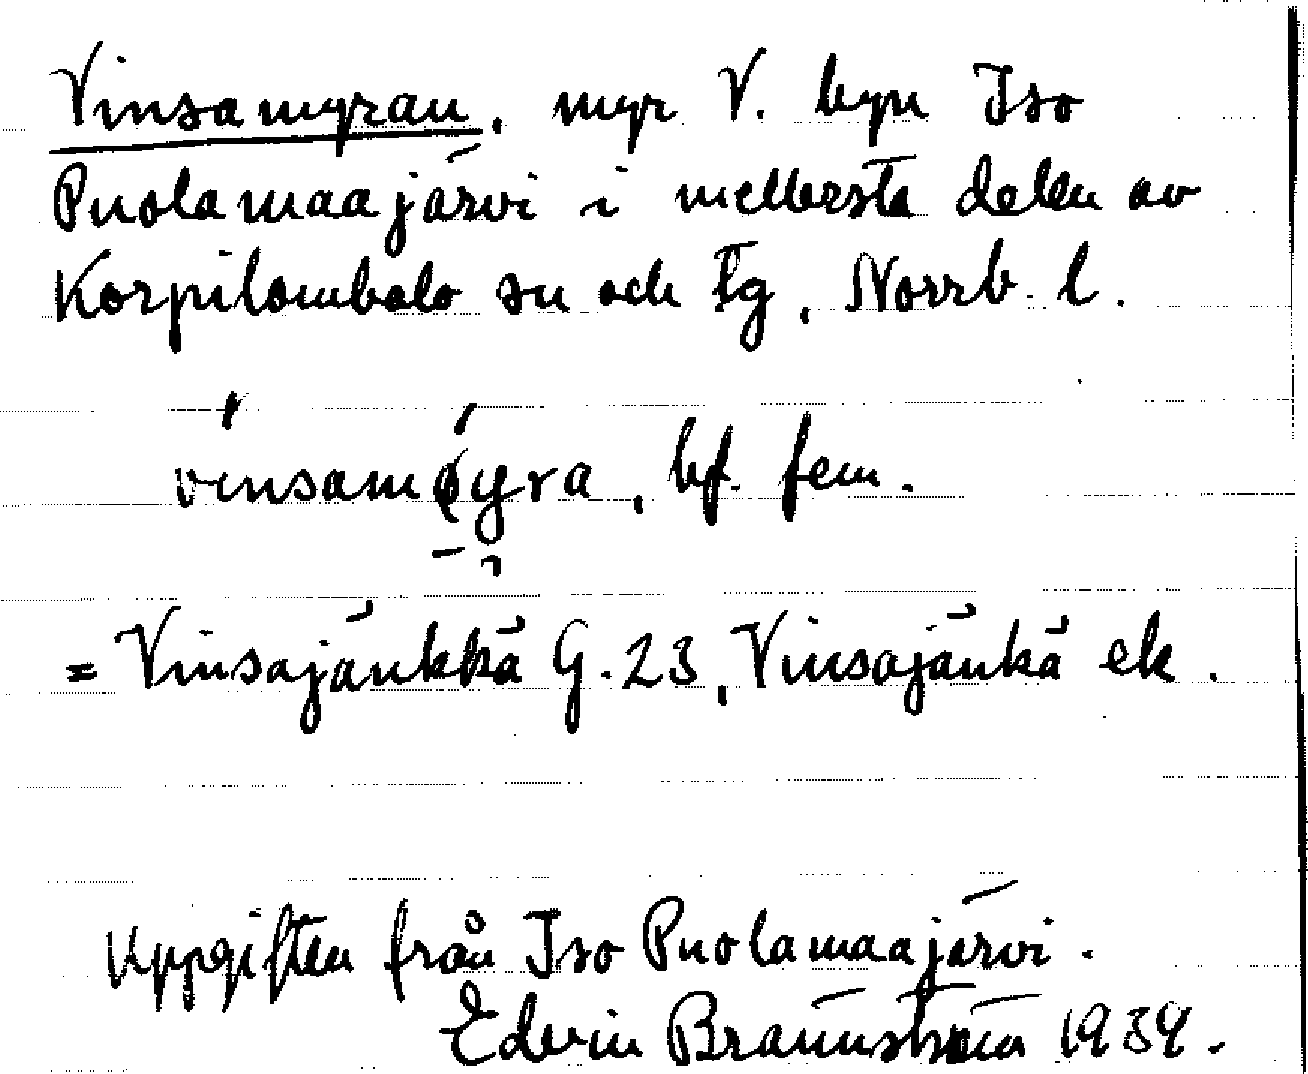 Vinsamyran, myr V. byn Iso
Puolamaajärvi i mellersta delen av
Korpilombolo sn och tg, Norrb. l.
vinsamyra, bf. fem.
= Vinsajänkkä G. 23, Vinsajänkä ek.
Uppgiften från Iso Puolamaajärvi.
Edvin Brännström 1934.